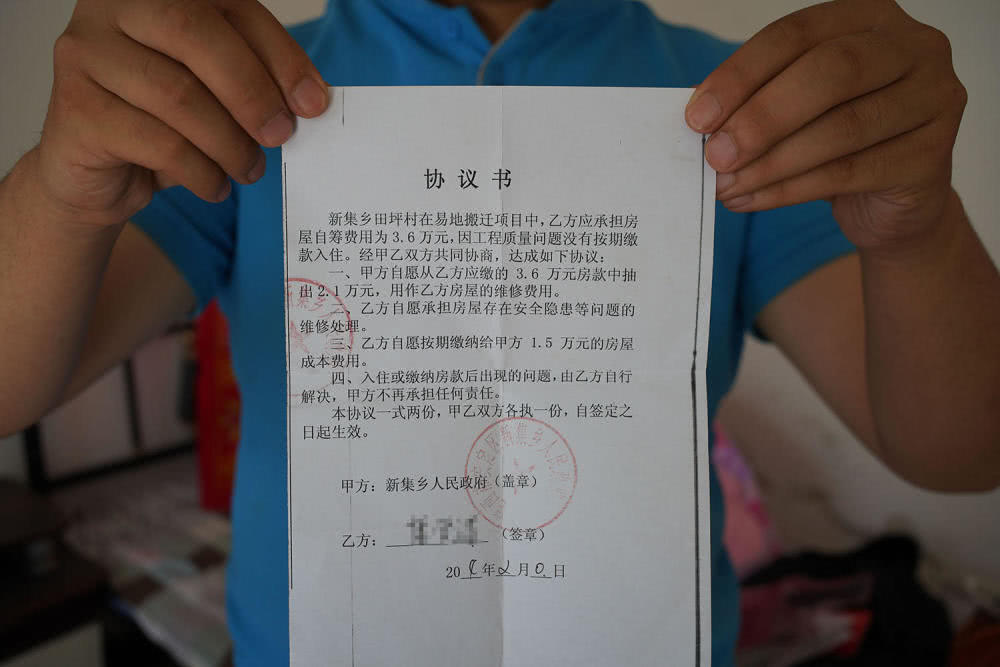 协议书
新集乡田坪村在易地搬迁项目中，乙方应承担房
屋自筹费用为3.6万元，因工程质量问题没有按期缴
款入住。经甲乙双方共同协商，达成如下协议：
一、甲方自愿从乙方应缴的 3.6 万元房款中抽
出2.1万元，用作乙方房屋的维修费用。
二、乙方自愿承担房屋存在安全隐患等问题的
维修处理。
三、乙方自愿按期缴纳给甲方 1.5 万元的房屋
成本费用。
四、入住或缴纳房款后出现的问题，由乙方自行
解决，甲方不再承担任何责任。
本协议一式两份，甲乙双方各执一份，自签定之
日起生效。
新集乡人民
甲方：新集乡人民政府（盖章）
乙方：（签章）
20 年2月0日